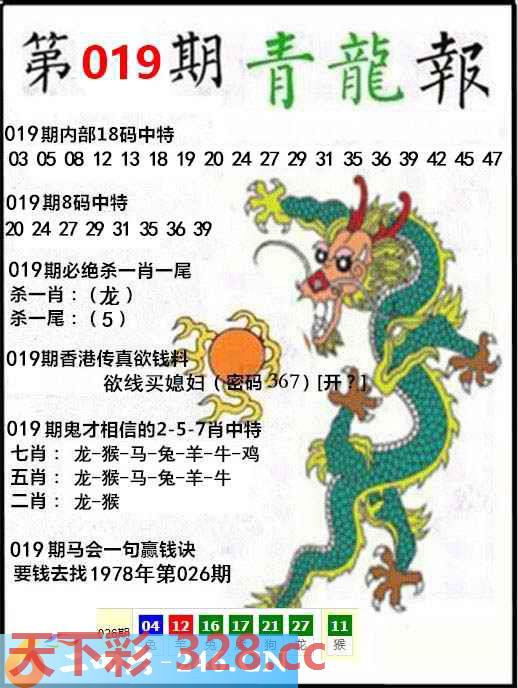 第019期青龍報
019期内部18码中特
03 05 08 12 13 18 19 20 24 27 29 31 35 36 39 42 45 47
019期8码中特
20 24 27 29 31 35 36 39
019期必绝杀一肖一尾
杀一肖：（龙）
杀一尾：（5）
019期香港传真欲钱料
欲线买媳妇（密码367）[开？]
019期鬼才相信的2-5-7肖中特
七肖： 龙-猴-马-兔-羊-牛-鸡
五肖： 龙-猴-马-兔-羊-牛
二肖： 龙-猴
019期马会一句赢钱诀
要钱去找1978年第026期
026期 04 12 16 17 21 27 11
兔 羊 兔 狗 龙 猴
天下彩-328.cc